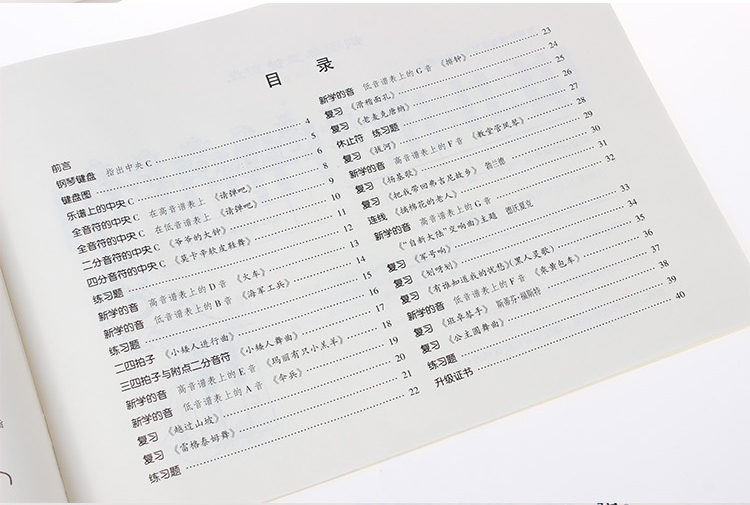 目 录
前言 4
钢琴键盘 指出中央 C 5
键盘图 6
乐谱上的中央 C
全音符的中央 C 在高音谱表上 《请弹吧》 8
全音符的中央 C 在低音谱表上 《请弹吧》 9
二分音符的中央 C 《爷爷的大钟》 10
四分音符的中央 C 《莫卡辛软皮鞋舞》 11
练习题 12
新学的音 高音谱表上的 D 音 《火车》 13
新学的音 低音谱表上的 B 音 《海军工兵》 14
练习题 15
二四拍子 《小矮人进行曲》 16
三四拍子与附点二分音符 《小矮人舞曲》 17
新学的音 高音谱表上的 E 音 《玛丽有只小羔羊》 18
新学的音 低音谱表上的 A 音 《伞兵》 19
复习 《越过山坡》 20
复习 《雷格泰姆舞》 21
练习题 22
新学的音 低音谱表上的 G 音 《排钟》 23
复习 《滑稽面孔》 24
复习 《老麦克唐纳》 25
休止符 练习题 26
复习 《拔河》 27
新学的音 高音谱表上的 F 音 《教堂管风琴》 28
复习 《杨基歌》 29
复习 《把我带回弗吉尼故乡》 勃兰德 30
连线 《摘棉花的老人》 31
新学的音 高音谱表上的 G 音 32
《“自新大陆”交响曲》主题 德沃夏克
复习 《军号响》 33
复习 《划呀划》 34
复习 《有谁知道我的忧愁》(黑人灵歌) 35
新学的音 低音谱表上的 F 音 《乘黄包车》 36
复习 《班卓琴手》 斯蒂芬·福斯特 37
复习 《公主圆舞曲》 38
练习题 39
升级证书 40